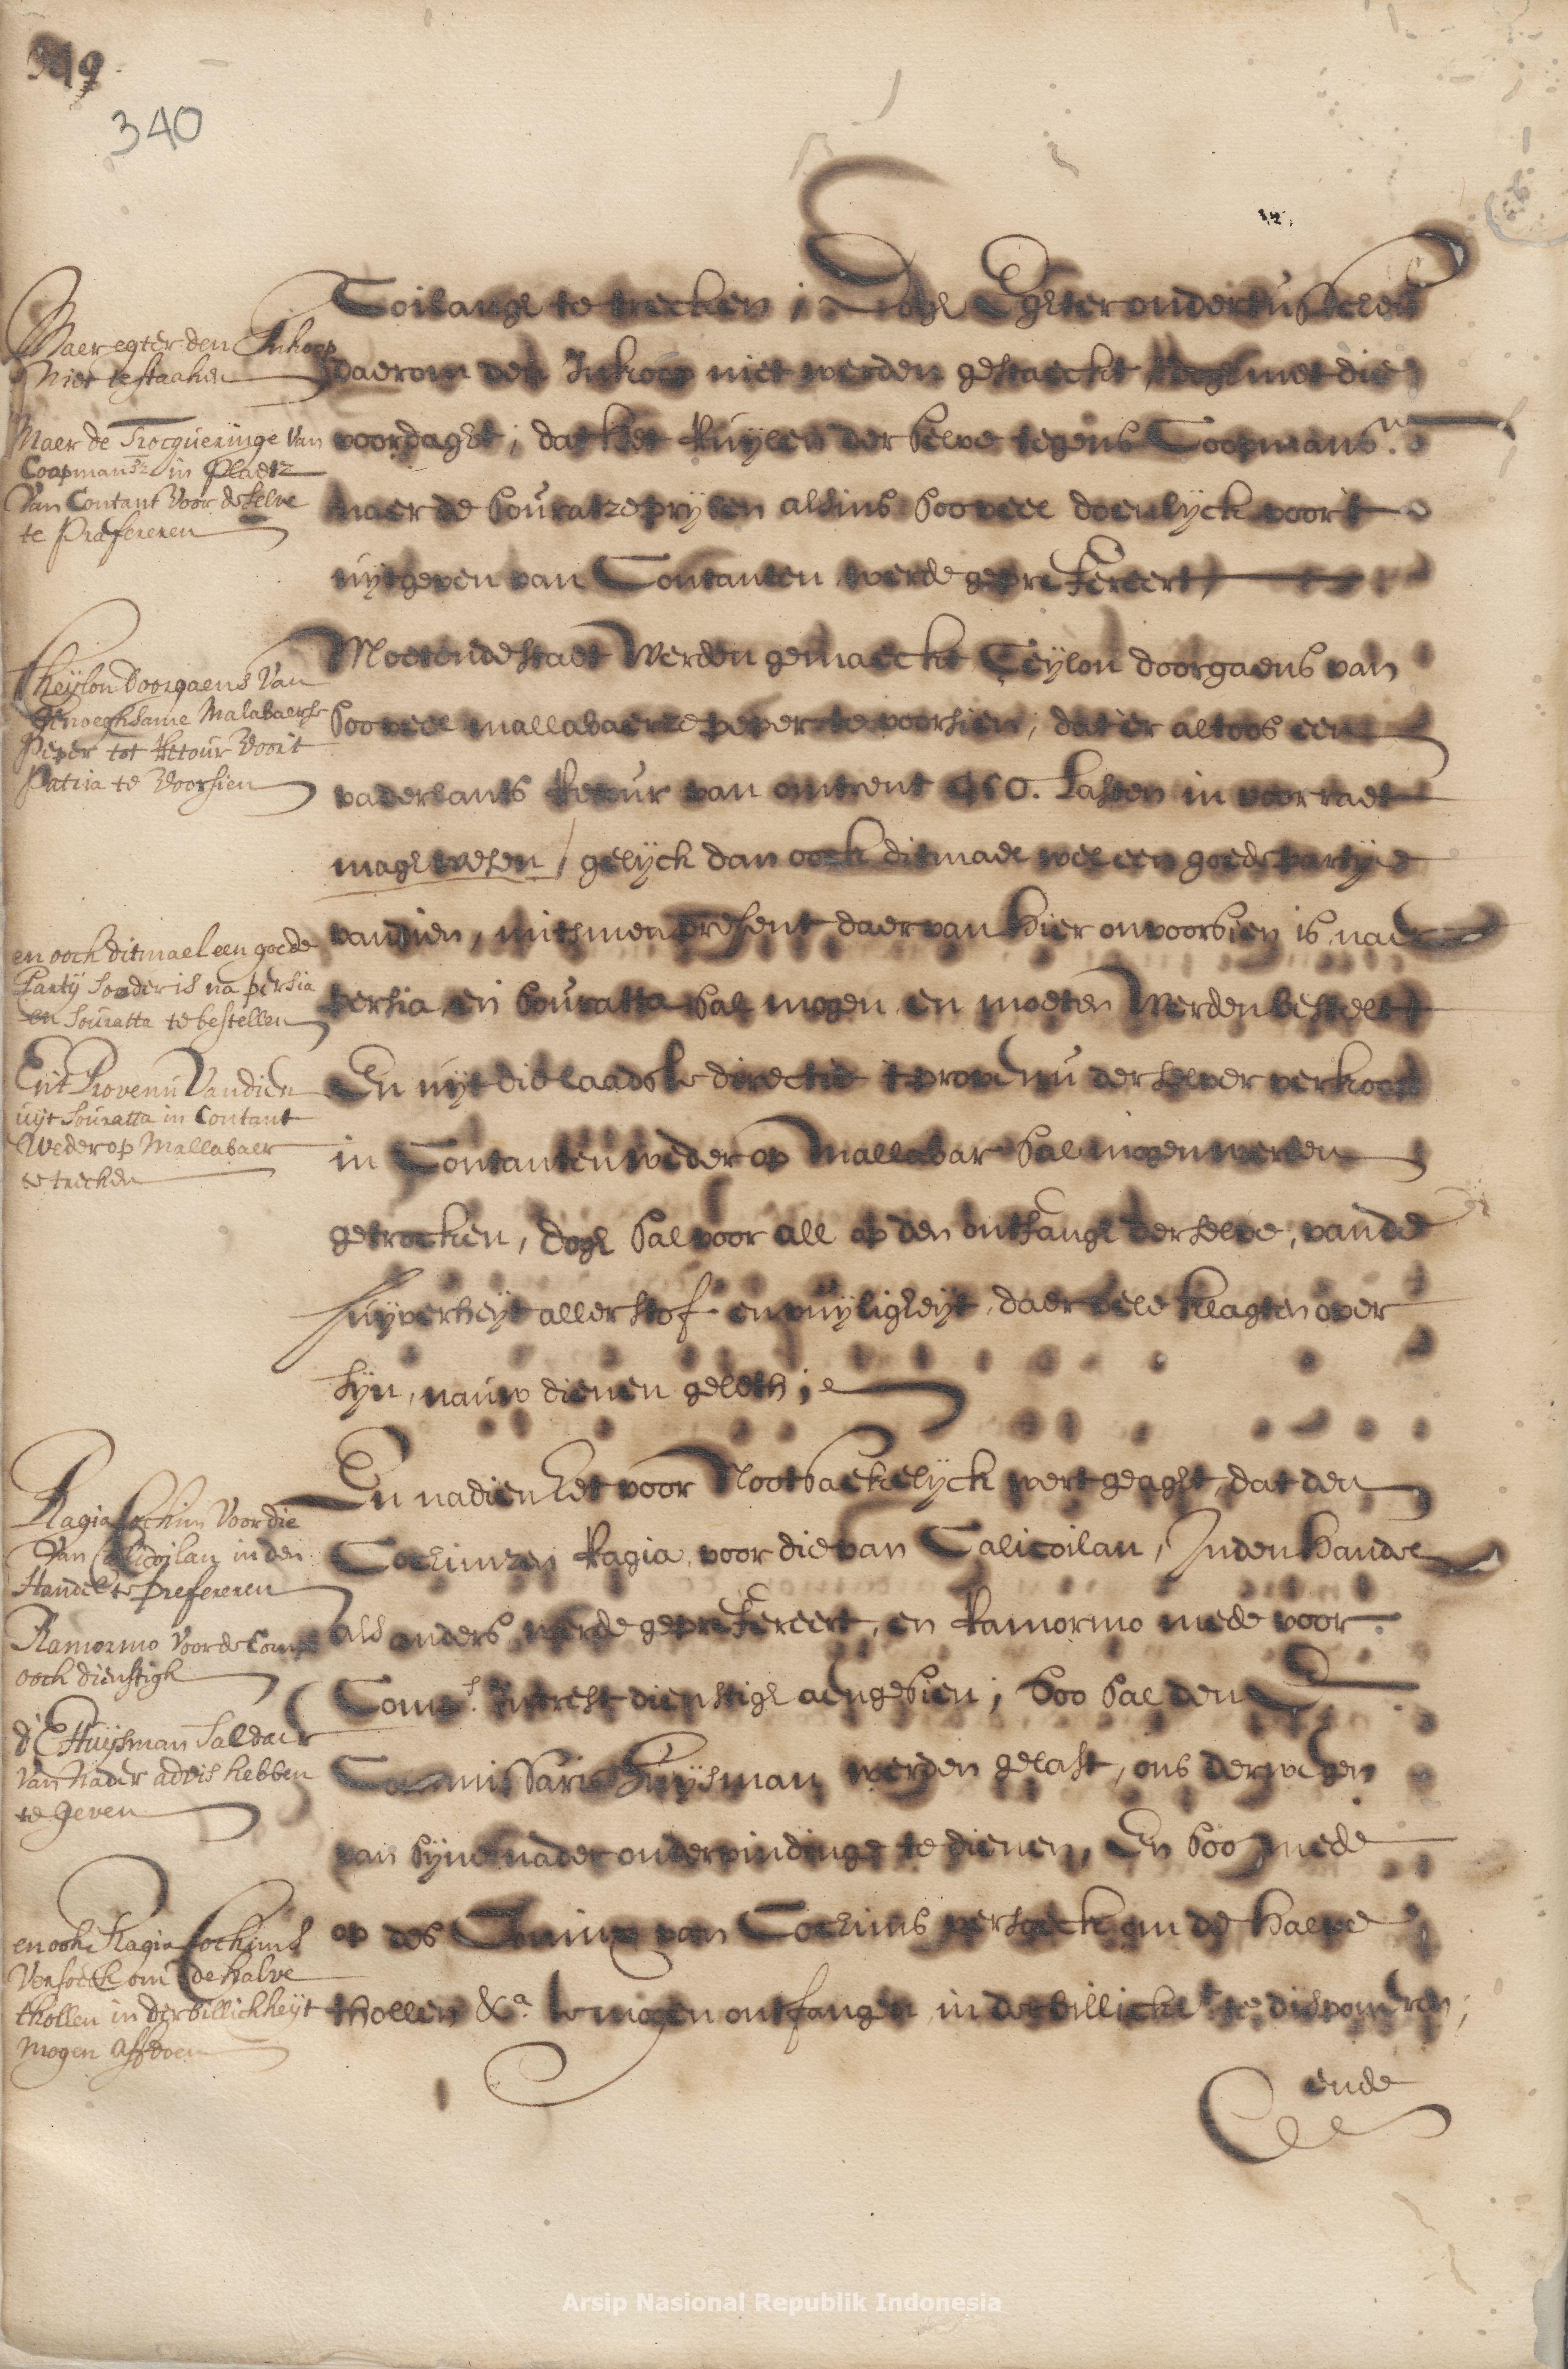 340
Maer egter den Inkoop
niet te staaken
Maer de Trocqueringe van
Coopmansz. in plaetz
van Contant voor deselve
te prefereren
Cheijlon doorgaens van
genoeghsame Malabaerse
Peper tot Retour voor't
Patria te voorsien
en ook ditmael een goede
Partij sonder is na persia
en Souratta te bestellen
En't Provenu van dien
uijt Souratta in Contant
weder op Mallabaer
te trecken
Ragia Cochim voor die
van Calicoilan in den
Handel te prefereren
Ramormo voor de Comp.
ook dienstigh
d'E Huijsman sal daer
van nader advis hebben
te geven
en ook Ragia Cochims
versoeck om de halve
thollen in der billickheijt
mogen affdoen
Coilangh te trecken; Dogh Eghter ondertusschen
daerom den Inkoop niet werden gestaeckt, dogh met die
voordaght, dat het Ruijlen der selve tegens Coopmans.n
naer de Souratze prijsen altins soo veel doenlijck voor't
uijtgeven van Contanten werde geprefereert,
Moetende staet werden gemaeckt Ceijlon doorgaens van
soo veel mallabaerze peper te voorsien, dat'er altoos een
vaderlants Retour van omtrent 450. Lasten in voorraet
magh wesen, gelijck dan oock ditmael wel een goede partije
van dien, mits men present daer van hier onvoorsien is, naer
Persia en Souratta sal mogen en moeten werden bestelt,
En uijt die laadste directie 't provenu der selver verkoop
in Contanten weder op Mallabar sal mogen werden
getrocken, dogh sal voor all op den ontfangh derselve, van de
suijverheijt aller stof en vuijligheijt, daer vele klagten over
sijn, nauw dienen geleth;
En nadien het voor Nootsaekelijck wert geaght, dat den
Cochimzen Ragia, voor die van Calicoilan, In den handel
als anders werde geprefereert, en Ramormo mede voor
Comps. Intrest dienstigh aengesien; soo sal den E
Commissaris Huijsman werden gelast, ons derwegen
van sijne nader ondervindinge te dienen, En soo mede
op des Coninx van Cochims versoeck om de halve
thollen &a. te mogen ontfangen in der billickt. te disponeren;
ende
Arsip Nasional Republik Indonesia